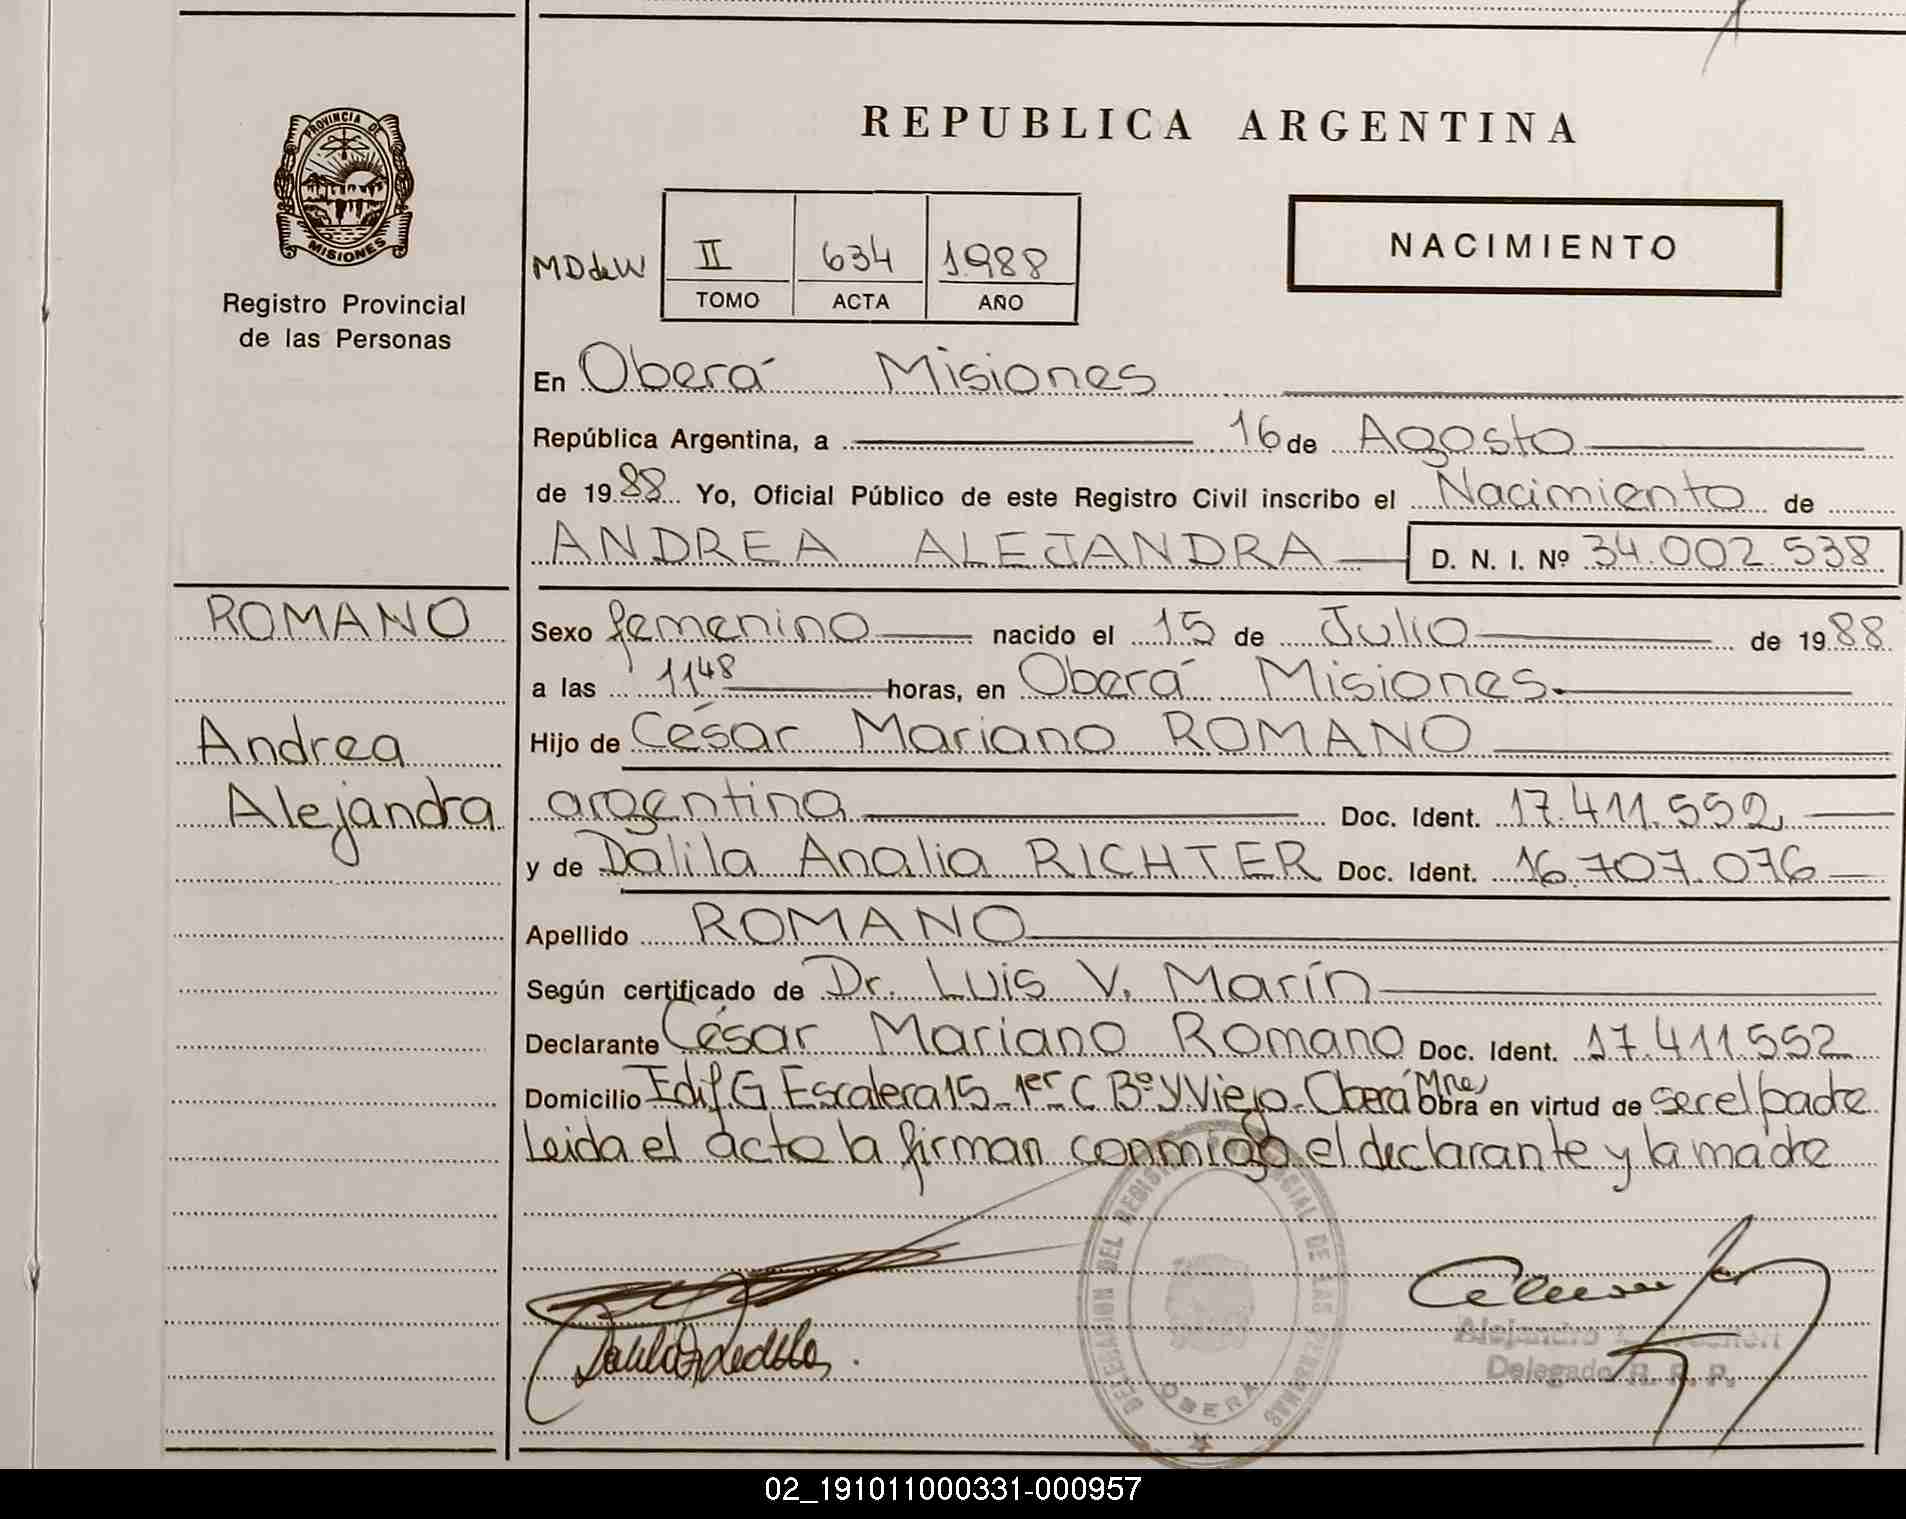 REPUBLICA ARGENTINA
PROVINCIA DE
MISIONES
Registro Provincial
de las Personas
MDdeW
II 634 1988
TOMO ACTA AÑO
NACIMIENTO
En Oberá Misiones
República Argentina, a 16 de Agosto
de 1988 Yo, Oficial Público de este Registro Civil inscribo el Nacimiento de
ANDREA ALEJANDRA D. N. I. Nº 34.002.538
ROMANO
Andrea
Alejandra
Sexo femenino nacido el 15 de Julio de 1988
a las 1148 horas, en Oberá Misiones.
Hijo de César Mariano ROMANO
argentina Doc. Ident. 17.411.552
y de Dalila Analia RICHTER Doc. Ident. 16.707.076
Apellido ROMANO
Según certificado de Dr. Luis V. Marín
Declarante César Mariano Romano Doc. Ident. 17.411.552
Domicilio Edif.G Escalera 15 1er C Bº YViejo Oberá Mnes Obra en virtud de ser el padre
Leida el acto la firman conmigo el declarante y la madre
DELEGACION DEL REGISTRO PROVINCIAL DE LAS PERSONAS
OBERA
Alejandro
Delegado R. P. P.
02_191011000331-000957